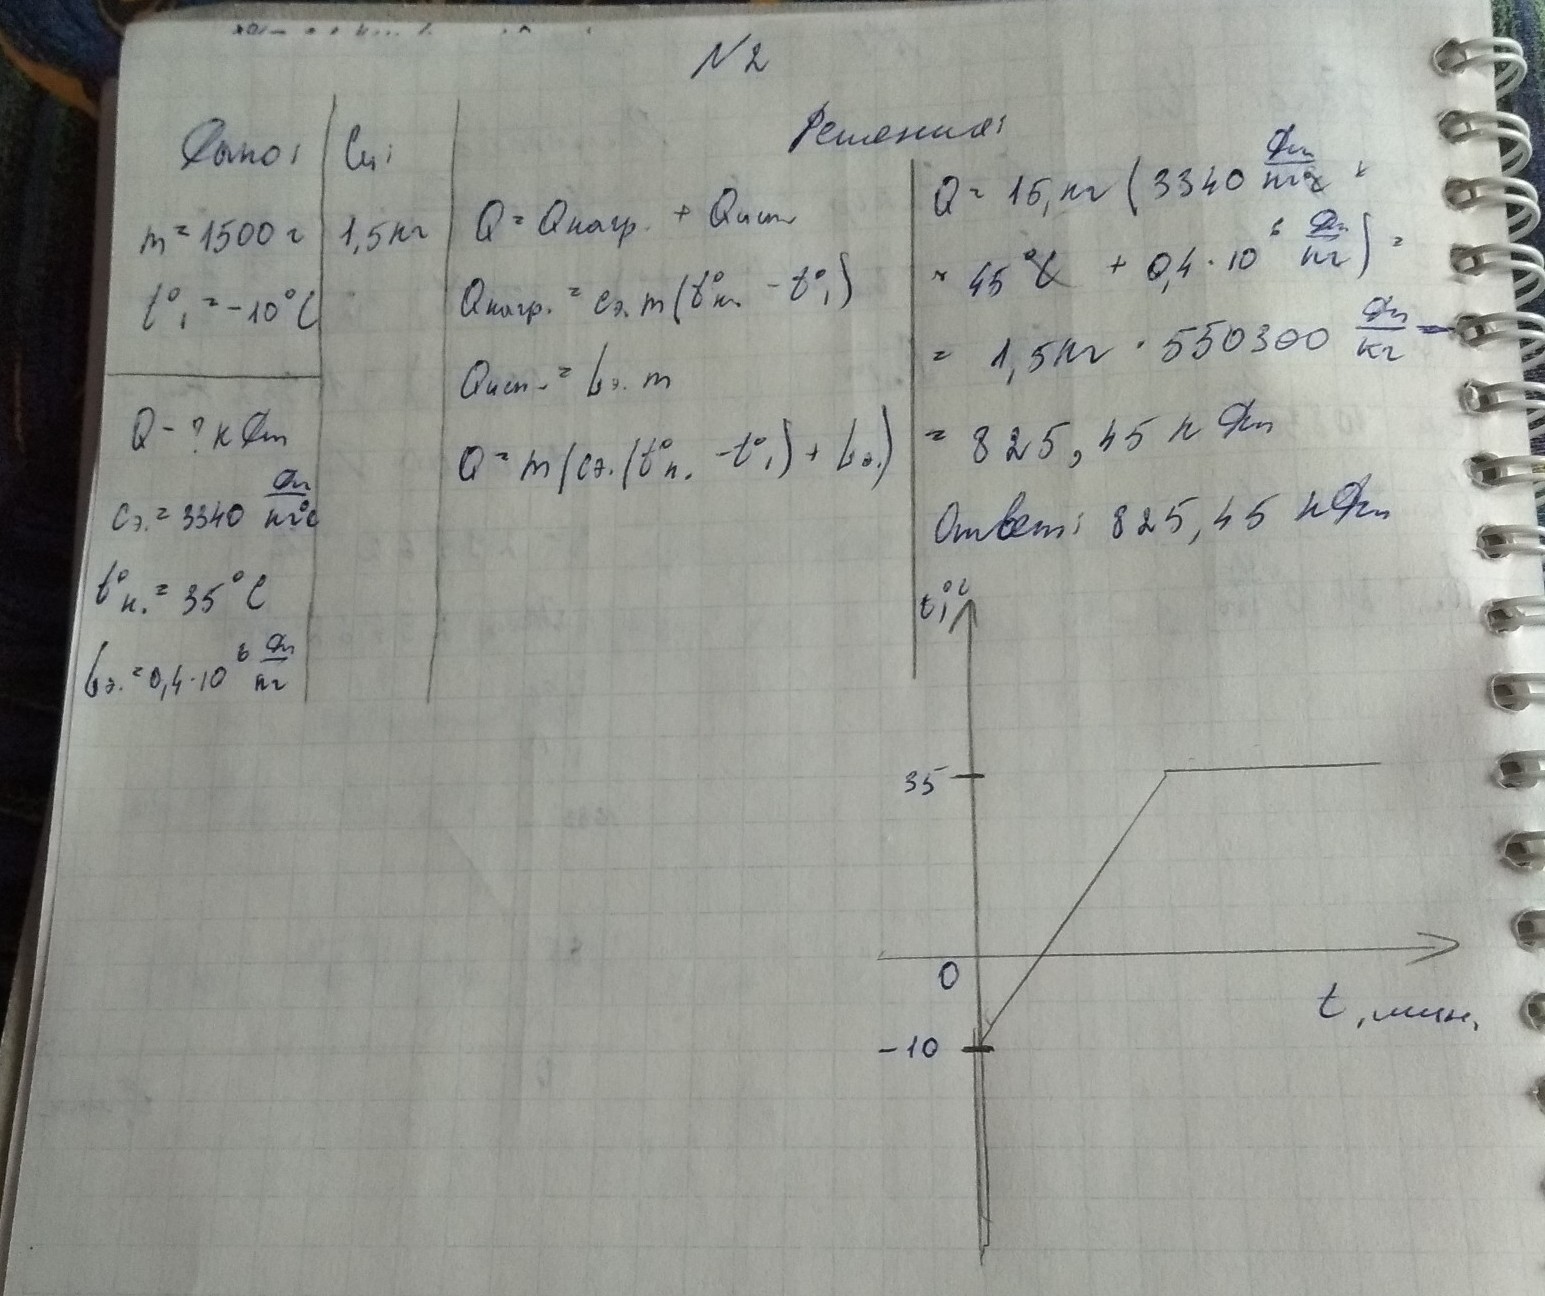 N2
Дано:
Си:
Решение:
m = 1500 г
1,5 кг
t°₁ = -10°C
Q - ? кДж
cэ. = 3340 Дж/кг°C
t°к. = 35°C
Lэ. = 0,4·10⁶ Дж/кг
Q = Qнагр. + Qисп.
Qнагр. = cэ. m (t°к. - t°₁)
Qисп. = Lэ. m
Q = m (cэ. (t°к. - t°₁) + Lэ.)
Q = 15, кг (3340 Дж/кг°C ×
× 45°C + 0,4·10⁶ Дж/кг) =
= 1,5 кг · 550300 Дж/кг =
= 825,45 кДж
Ответ: 825,45 кДж
t, °C
35
0
-10
t, мин.